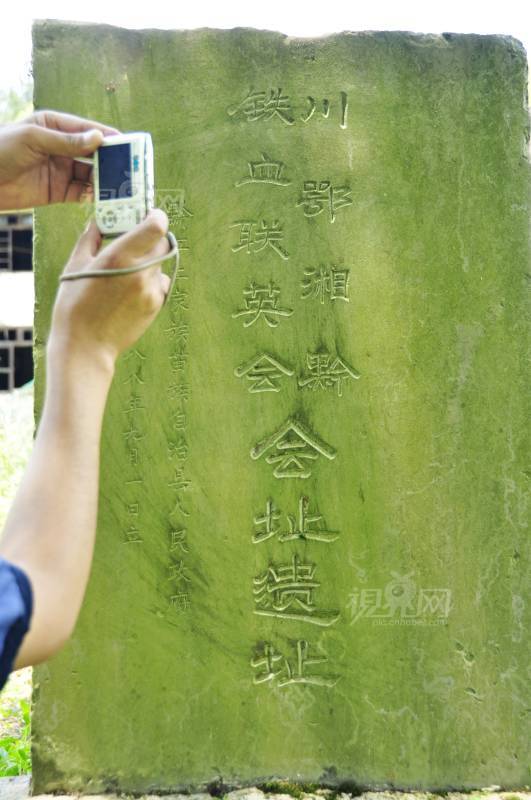 川鄂湘黔
铁血联英会
会址遗址
黔江土家族苗族自治县人民政府
八八年九月一日立
視界网
pic.cnhubei.com